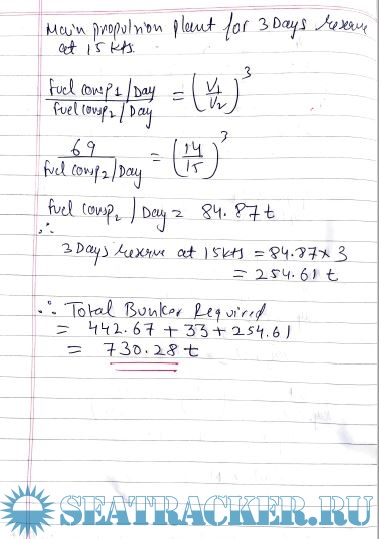 Main propulsion plant for 3 Days reserve
at 15 kts.
fuel consp1/Day / fuel consp2/Day = (V1/V2)^3
69 / fuel consp2/Day = (14/15)^3
fuel consp2/Day = 84.87 t
∴
3 Days reserve at 15 kts = 84.87 × 3
= 254.61 t
∴ Total Bunker Required
= 442.67 + 33 + 254.61
= 730.28 t
SEATRACKER.RU